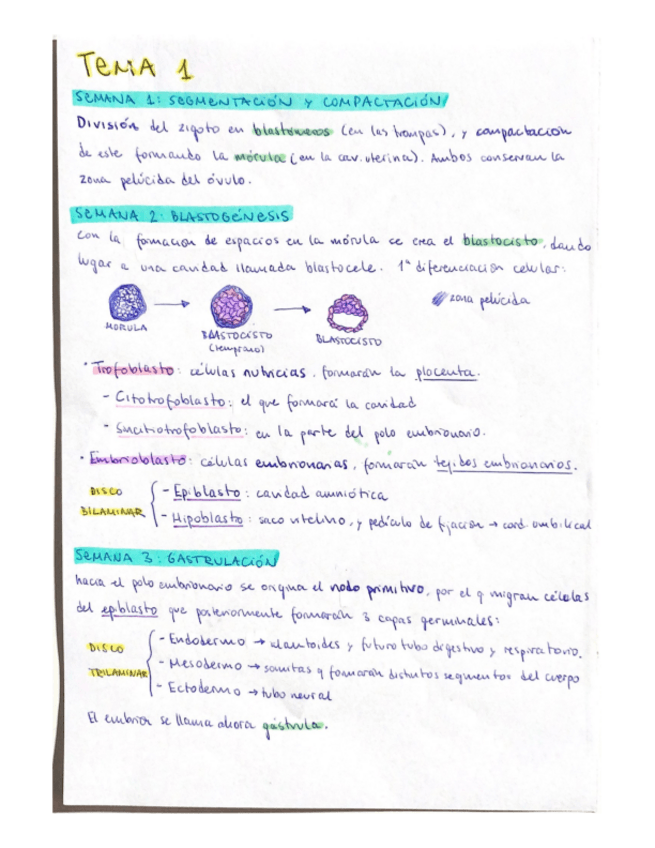 TEMA 1
SEMANA 1: SEGMENTACIÓN Y COMPACTACIÓN
División del zigoto en blastómeros (en las trompas), y compactación
de este formando la mórula (en la cav. uterina). Ambos conservan la
zona pelúcida del óvulo.
SEMANA 2: BLASTOGÉNESIS
Con la formación de espacios en la mórula se crea el blastocisto, dando
lugar a una cavidad llamada blastocele. 1ª diferenciación celular:
zona pelúcida
MORULA
BLASTOCISTO
(temprano)
BLASTOCISTO
· Trofoblasto: células nutricias, formarán la placenta.
- Citotrofoblasto: el que formará la cavidad
- Sincitiotrofoblasto: en la parte del polo embrionario.
· Embrioblasto: células embrionarias, formarán tejidos embrionarios.
DISCO
BILAMINAR
- Epiblasto: cavidad amniótica
- Hipoblasto: saco vitelino, y pedículo de fijación → cord. umbilical
SEMANA 3: GASTRULACIÓN
hacia el polo embrionario se origina el nodo primitivo, por el q migran células
del epiblasto que posteriormente formarán 3 capas germinales:
DISCO
TRILAMINAR
- Endodermo → alantoides y futuro tubo digestivo y respiratorio.
- Mesodermo → somitas q formarán distintos segmentos del cuerpo
- Ectodermo → tubo neural
El embrión se llama ahora gástrula.